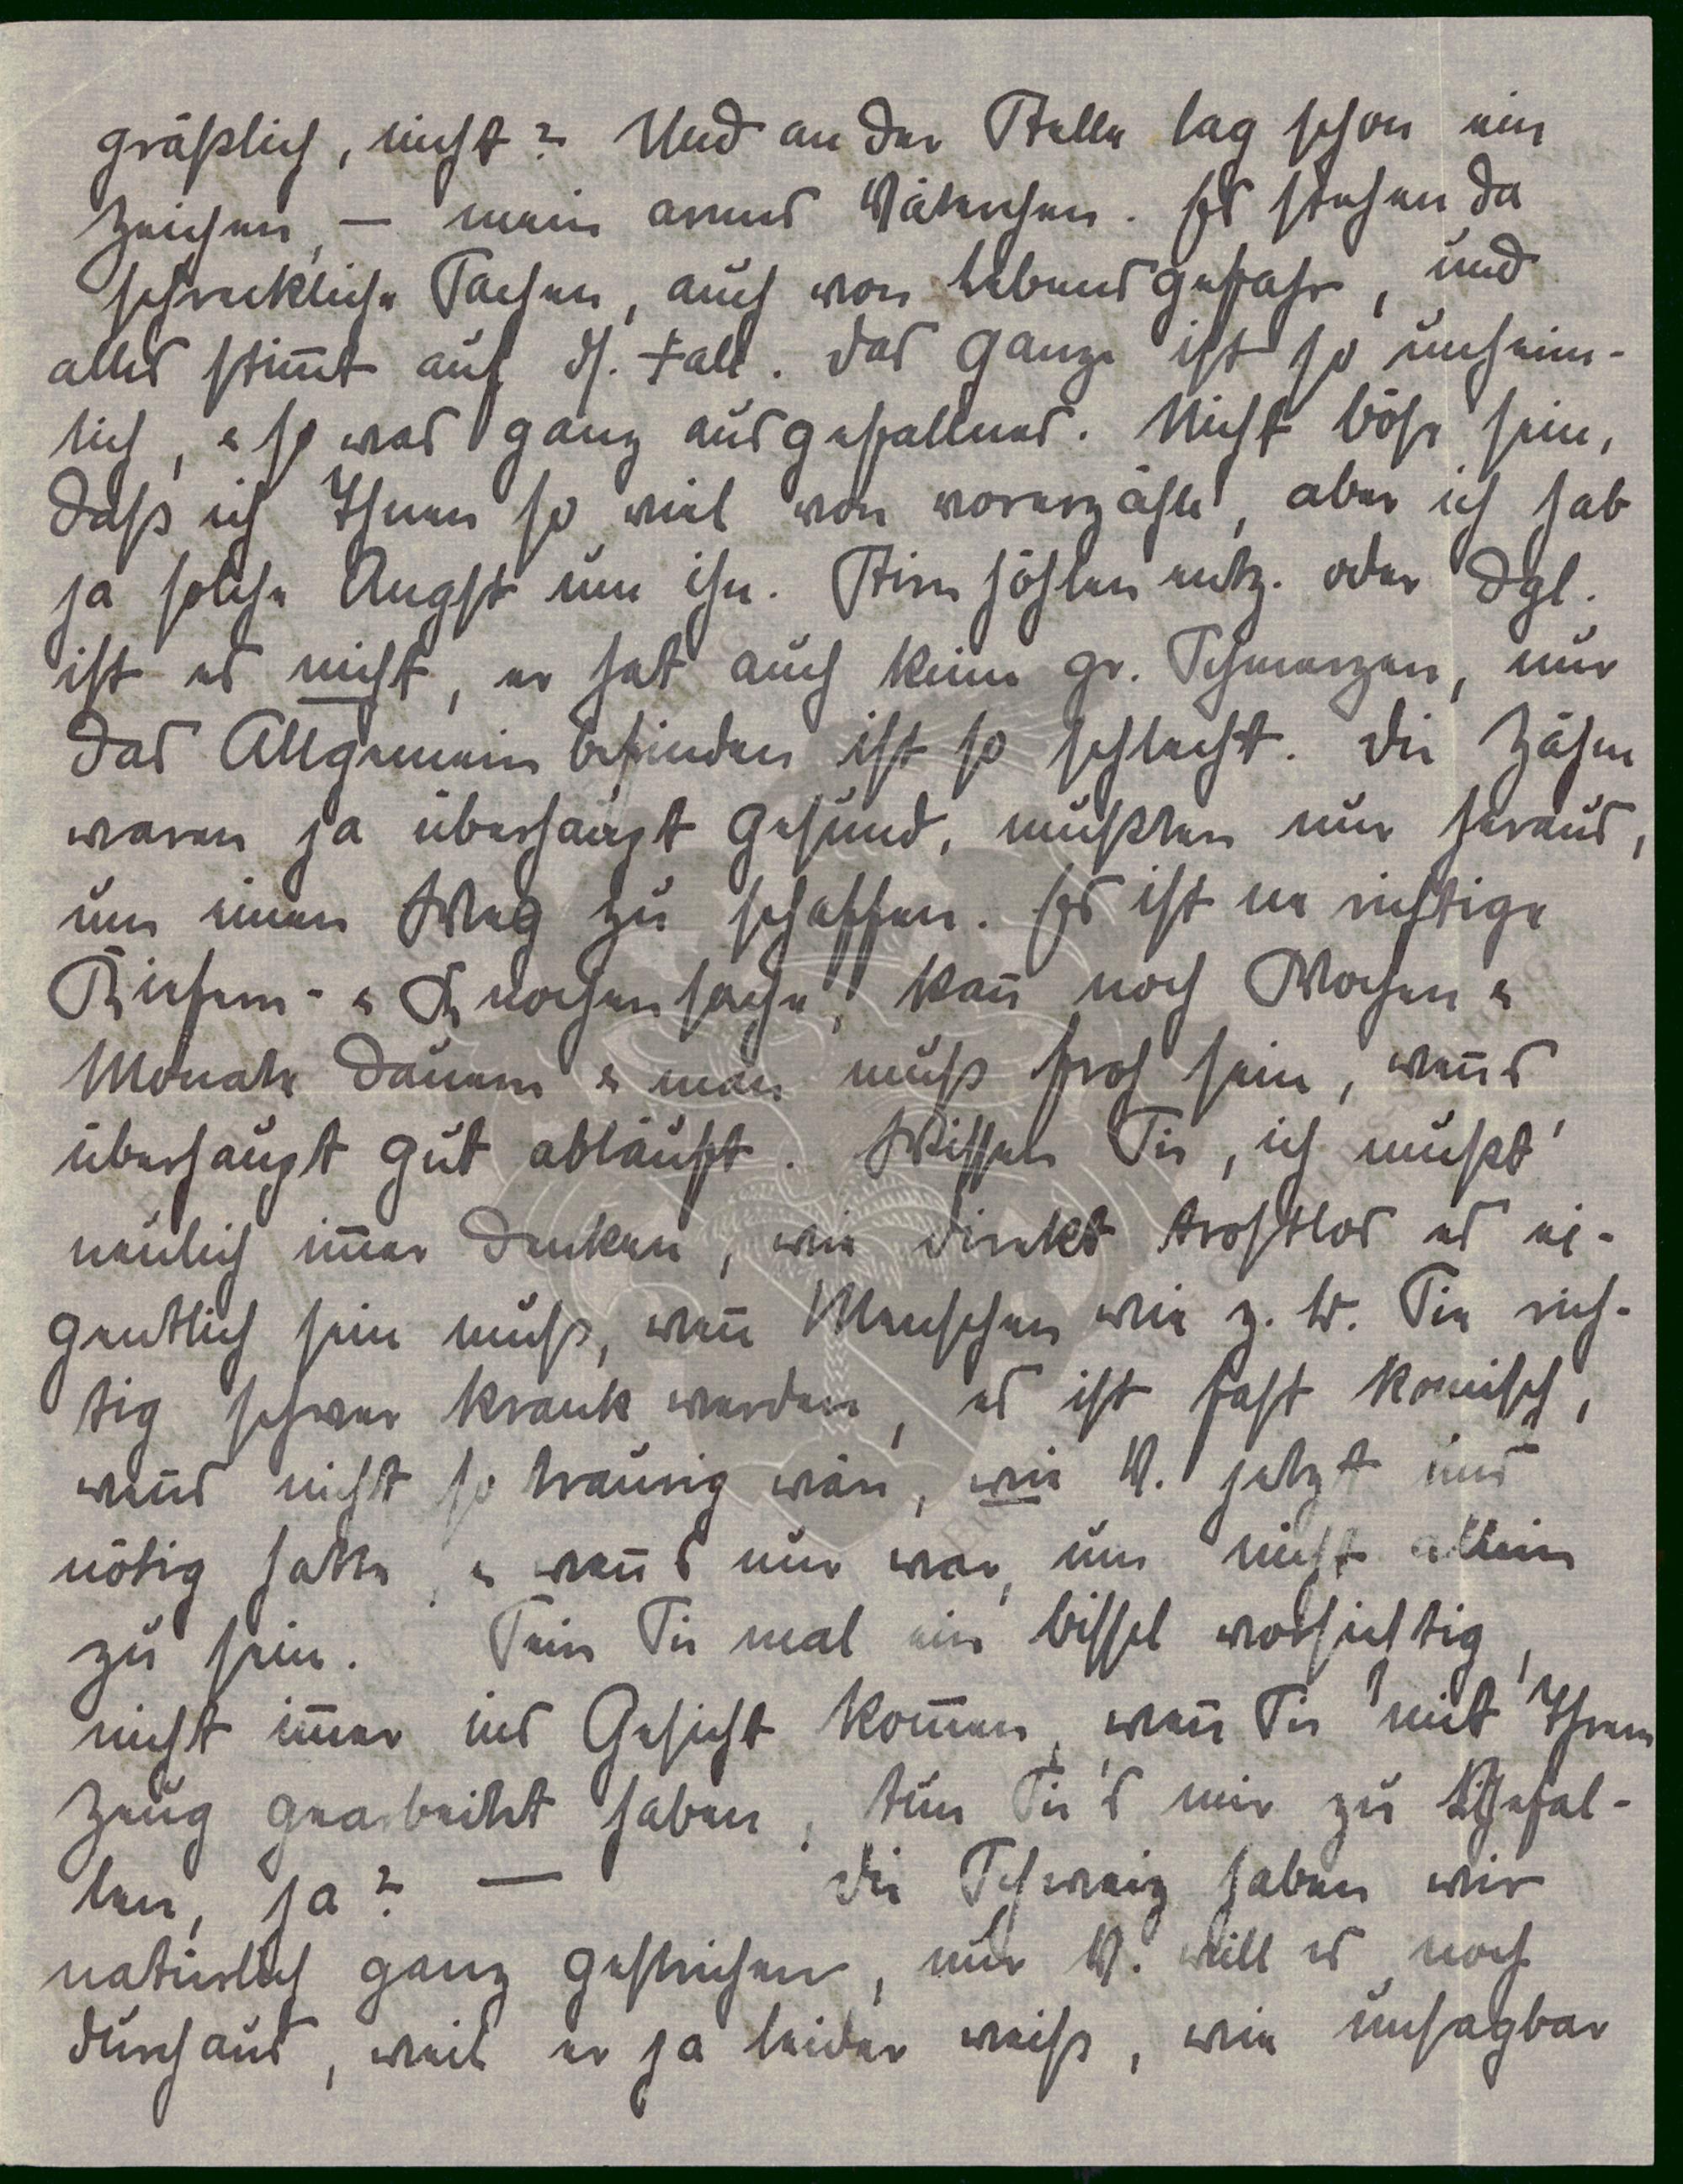 gräßlich, nicht? Und an der Stelle lag schon ein
Zeichen, — mein armes Väterchen. Es stehen da
schreckliche Sachen, auch von Lebensgefahr, und
alles stim̄t auf ds. Fall. Das Ganze ist so unheim-
lich, u so was ganz ausgefallnes. Nicht böse sein,
daß ich Ihnen so viel von vorerzähle, aber ich hab
ja solche Angst um ihn. Stirnhöhlenentz. oder dgl.
ist es nicht, er hat auch keine gr. Schmerzen, nur
das Allgemeinbefinden ist so schlecht. Die Zähne
waren ja überhaupt gesund, mußten nur heraus,
um einen Weg zu schaffen. Es ist ne richtige
Kiefern- u Knochensache, kan̄ noch Wochen u
Monate dauern u man muß froh sein, wen̄s
überhaupt gut abläuft. Wissen Sie, ich mußt'
neulich im̄er denken, wie direkt trostlos es ei-
gentlich sein muß, wen̄ Menschen wie z. B. Sie rich-
tig schwer krank werden, es ist fast komisch,
wen̄s nicht so traurig wär, wie V. jetzt uns
nötig hatte, u wen̄s nur war, um nicht allein
zu sein. Sein Sie mal ein bissel vorsichtig,
nicht im̄er ins Gesicht kom̄en, wen̄ Sie mit Ihrem
Zeug gearbeitet haben, tun Sie's mir zu Gefal-
len, ja? — Die Schweiz haben wir
natürlich ganz gestrichen, nur V. will es noch
durchaus, weil er ja leider weiß, wie unsagbar